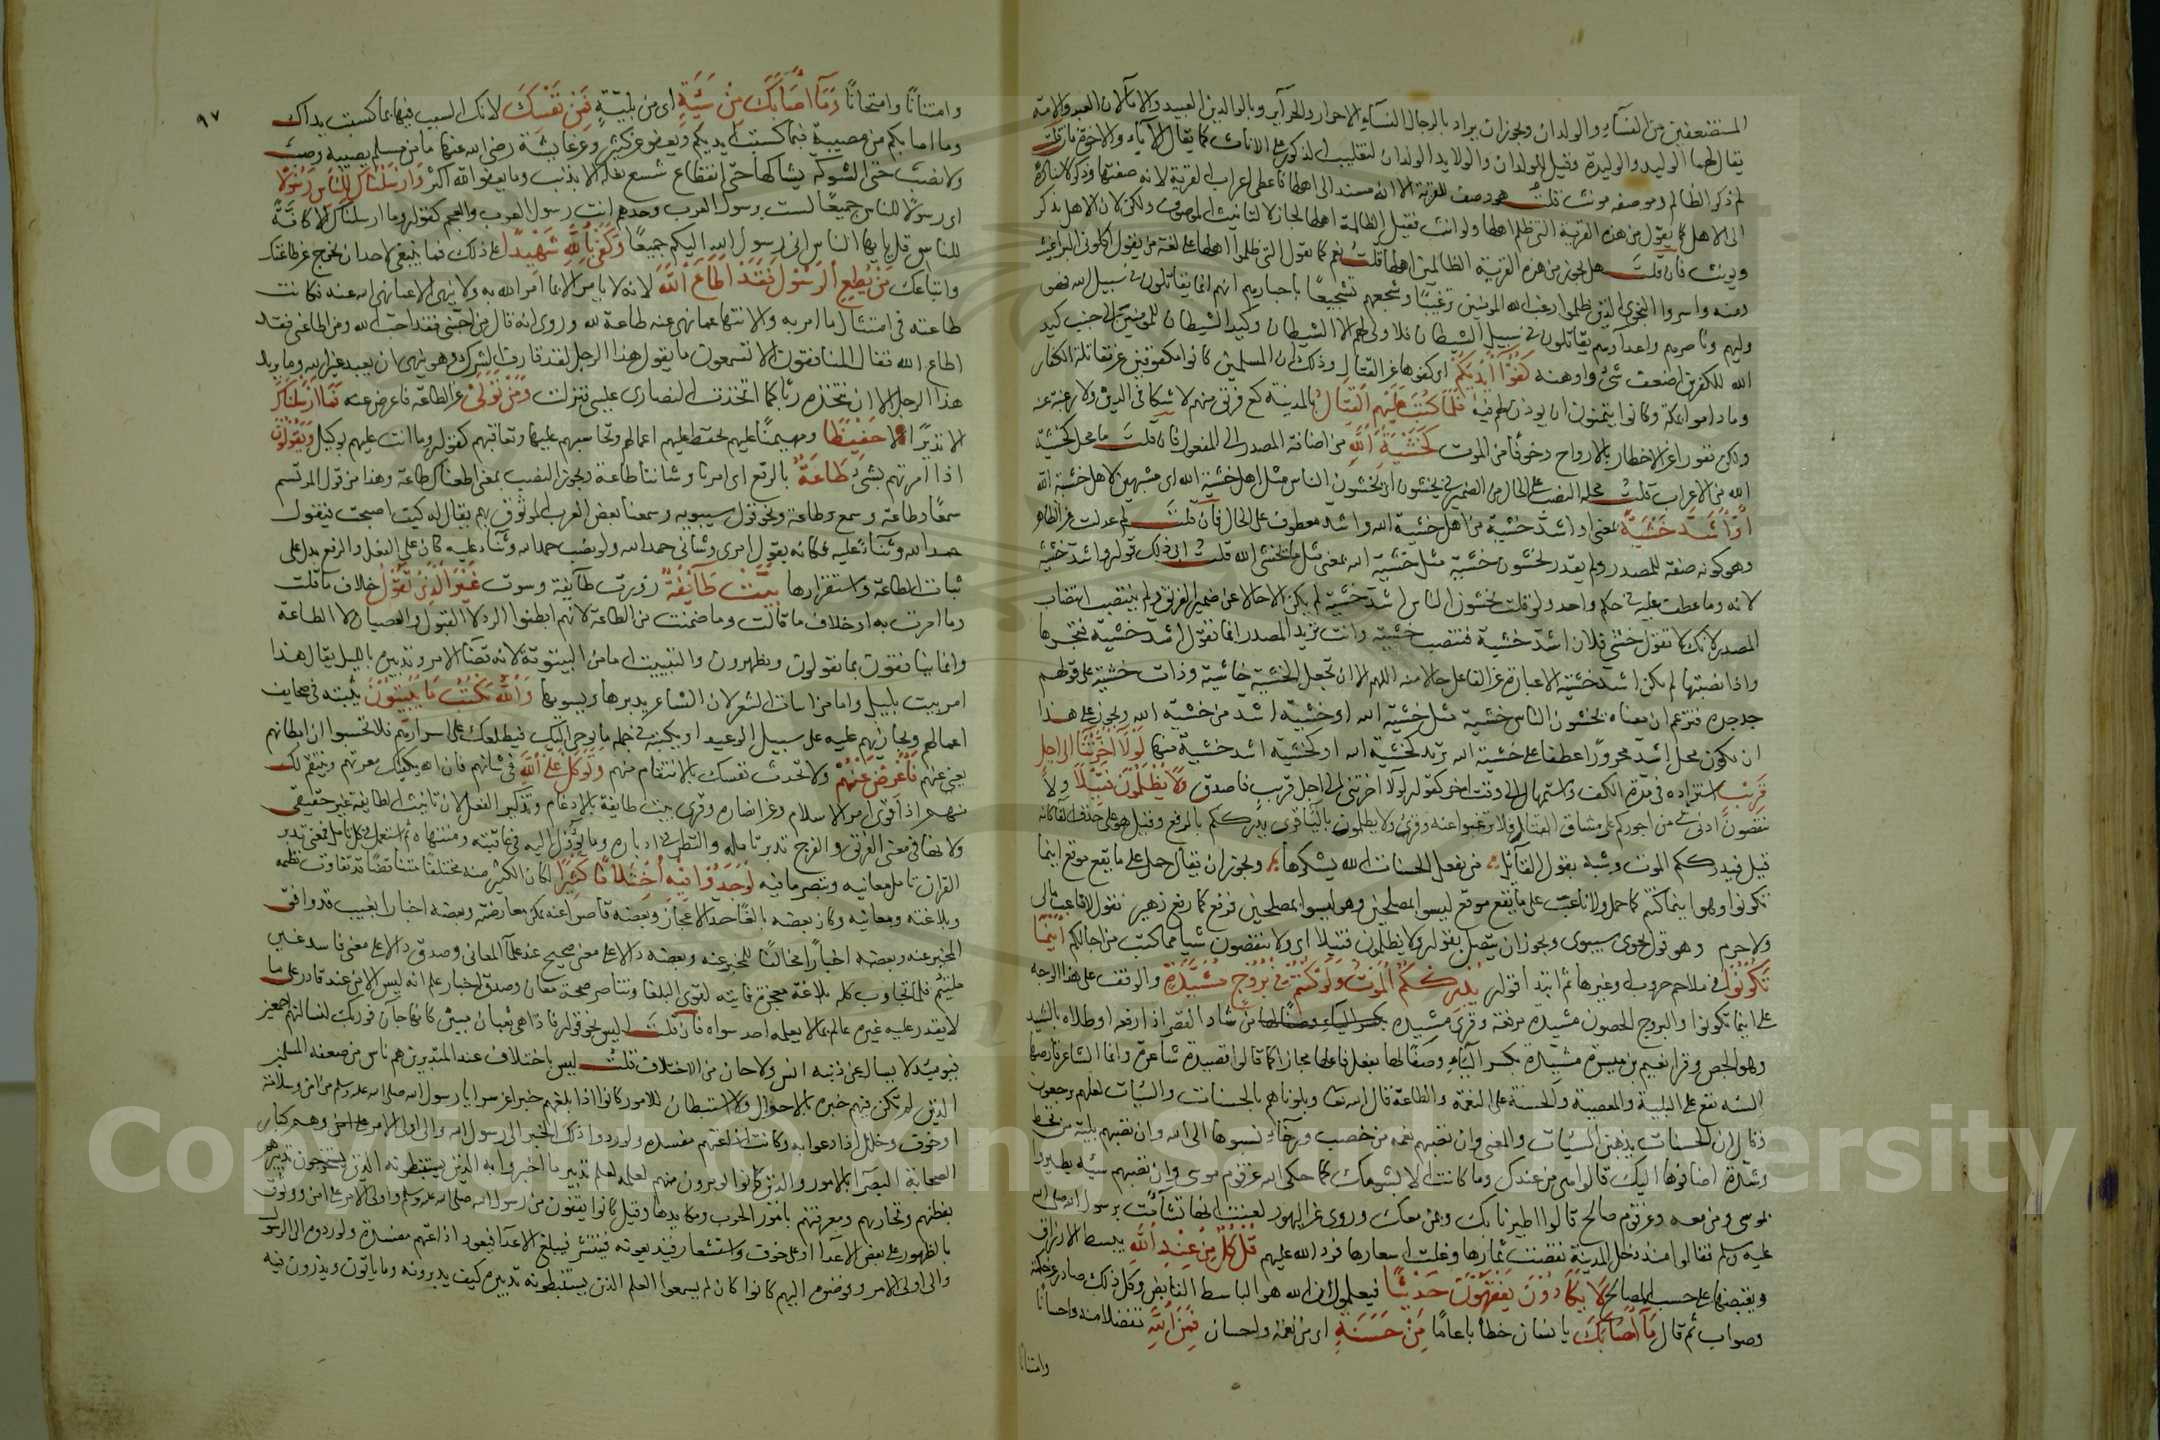 المستضعفين من النساء والولدان ويجوز ان يراد بالرجال النساء الاحرار والحرآير وبالولدين العبيد والاماء لان العبد والامة
يقال لهما الوليد والوليدة وقيل للولدان والولايد الولدان لتغليب الذكور على الاناث كما يقال الآباء والاخوة فان قلت
لم ذكر الظالم وموصوفه مونث قلت هو وصف للقرية الا انه مسند الى اهلها فاعطى اعراب القرية لانه صفتها وذكر لاسناده
الى الاهل كما تقول من هذه القرية التي ظلم اهلها ولو انث فقيل الظالمة اهلها لجاز لا لتانيث الموصوف ولكن لان الاهل يذكر
ويونث فان قلت هل يجوز من هذه القرية الظالمين اهلها قلت نعم كما تقول التي ظلموا اهلها على لغة من يقول اكلوني البراغيث
ومنه واسروا النجوى الذين ظلموا رغب الله المومنين ترغيبا وشجعهم تشجيعا باخبارهم انهم انما يقاتلون في سبيل الله فهو
وليهم وناصرهم واعداوهم يقاتلون في سبيل الشيطان فلا ولي لهم الا الشيطان وكيد الشيطان للمومنين الى جنب كيد
الله للكفرين اضعف شئ واوهنه كفوا ايديكم اى كفوها عن القتال وذلك ان المسلمين كانوا مكفوفين عن مقاتلة الكفار
وما داموا بمكة وكانوا يتمنون ان يوذن لهم فيه فلما كتب عليهم القتال بالمدينة كع فريق منهم لا شكا في الدين ولا رغبة عنه
ولكن نفورا عن الاخطار بالارواح وخوفا من الموت كخشية الله من اضافة المصدر الى المفعول فان قلت ما محل كخشية
الله من الاعراب قلت محله النصب على الحال من الضمير في يخشون اى يخشون الناس مثل اهل خشية الله اى مشبهين لاهل خشية الله
او اشد خشية بمعنى او اشد خشية من اهل خشية الله واشد معطوف على الحال فان قلت لم عدلت عن الظاهر
وهو كونه صفة للمصدر ولم يقدر يخشون خشية مثل خشية الله بمعنى مثل ما يخشى الله قلت ابى ذلك قوله واشد خشية
لانه وما عطف عليه في حكم واحد ولو قلت يخشون الناس اشد خشية لم يكن الا حالا عن ضمير الفريق ولم ينتصب انتصاب
المصدر لانك لا تقول خشي فلان اشد خشية فتنصب خشية وانت تريد المصدر انما تقول اشد خشية فتجرها
واذا نصبتها لم يكن اشد خشية الا عبارة عن الفاعل حالا منه اللهم الا ان تجعل الخشية خاشية وذات خشية على قولهم
جد جده فتزعم ان معناه يخشون الناس خشية مثل خشية الله او خشية اشد من خشية الله ويجوز على هذا
ان يكون محل اشد مجرورا عطفا على خشية الله تريد كخشية الله او كخشية اشد خشية منها لولا اخرتنا الى اجل
قريب استزاده في مدة الكف واستمهال الى وقت اخر كقوله لولا اخرتني الى اجل قريب فاصدق ولا يظلمون فتيلا ولا
تنقصون ادنى شئ من اجوركم على مشاق القتال فلا ترغبوا عنه وقرئ ولا يظلمون بالياء قرئ يدرككم بالرفع وقيل هو على حذف الفا كانه
قيل فيدرككم الموت وشبه بقول القائل من يفعل الحسنات الله يشكرها ويجوز ان يقال حمل على ما يقع موقع اينما
تكونوا وهو اينما كنتم كما حمل ولا ناعب على ما يقع موقع ليسوا المصلحين وهو ليسوا بمصلحين فرفع كما رفع زهير يقول لا غائب مالي
ولا حرم وهو قول نحوى سيبوى ويجوز ان يتصل بقوله ولا يظلمون فتيلا اى ولا تنقصون شيا مما كتب من اجالكم اينما
تكونوا في ملاحم حروب او غيرها ثم ابتدا قوله يدرككم الموت ولو كنتم في بروج مشيدة والوقف على هذا الوجه
على اينما تكونوا والبروج الحصون مشيدة مرفعة وقرئ مشيدة من شاد القصر اذا رفعه او طلاه بالشيد
وهو الجص وقرا نعيم بن ميسرة مشيدة بكسر الياء وصفا لها بفعل فاعلها مجازا كما قالوا قصيدة شاعرة وانما الشاعر قارضها
السيئة تقع على البلية والمعصية والحسنة على النعمة والطاعة قال الله تعا وبلوناهم بالحسنات والسيات لعلهم يرجعون
وقال ان الحسنات يذهبن السيات والمعنى وان تصبهم نعمة من خصب ورخآء نسبوها الى الله وان تصبهم بلية من قحط
وشدة اضافوها اليك قالوا هى من عندك وما كانت الا بشومك كما حكى الله عن قوم موسى وان تصبهم سيئة يطيروا
بموسى ومن معه وعن قوم صالح قالوا اطيرنا بك وبمن معك وروى عن اليهود لعنت انها تشآمت برسول الله صلى الله
عليه وسلم فقالوا منذ دخل المدينة نقصت ثمارها وغلت اسعارها فرد الله عليهم قل كل من عند الله يبسط الارزاق
ويقبضها على حسب المصالح لا يكادون يفقهون حديثا فيعلموا ان الله هو الباسط القابض وكل ذلك صادر عن حكمة
وصواب ثم قال ما اصابك يا انسان خطابا عاما من حسنة اى من نعمة واحسان فمن الله تفضلا منه واحسانا
وامتنانا
٩٧
وامتنانا وامتحانا وما اصابك من سيئة اى من بلية فمن نفسك لانك السبب فيها بما كسبت يداك
وما اصابكم من مصيبة فبما كسبت ايديكم ويعفو عن كثير وعن عايشة رضى الله عنها ما من مسلم يصيبه وصب
ولا نصب حتى الشوكة يشاكها حتى انقطاع شسع نعله الا بذنب وما يعفو الله اكثر وارسلناك للناس رسولا
اى رسولا للناس جميعا لست برسول العرب وحدهم انت رسول العرب والعجم كقوله وما ارسلناك الا كافة
للناس قل يايها الناس انى رسول الله اليكم جميعا وكفى بالله شهيدا على ذلك فما ينبغى لاحد ان يخرج عن طاعتك
واتباعك من يطع الرسول فقد اطاع الله لانه لا يامر الا بما امر الله به ولا ينهى الا عما نهى الله عنه فكانت
طاعته في امتثال ما امر به والانتها عما نهى عنه طاعة لله وروى انه قال من احبنى فقد احب الله ومن اطاعنى فقد
اطاع الله فقال المنافقون الا تسمعون ما يقول هذا الرجل لقد قارف الشرك وهو ينهى ان يعبد غير الله وما يريد
هذا الرجل الا ان نتخذه ربا كما اتخذت النصارى عيسى فنزلت ومن تولى عن الطاعة فاعرض عنه فما ارسلناك
الا نذيرا لا حفيظا ومهيمنا عليهم تحفظ عليهم اعمالهم وتحاسبهم عليها وتعاقبهم كقوله وما انت عليهم بوكيل ويقولون
اذا امرتهم بشئ طاعة بالرفع اى امرنا وشاننا طاعة ويجوز النصب بمعنى اطعناك طاعة وهذا من قول المرتسم
سمعا وطاعة وسمع وطاعة ونحو قول سيبويه وسمعنا بعض العرب الموثوق بهم يقال له كيف اصبحت فيقول
حمد الله وثناء عليه فكانه يقول امرى وشانى حمد الله ولو نصب حمد الله وثناء عليه كان على الفعل والرفع يدل على
ثبات الطاعة واستقرارها بيت طآئفة زورت طآيفة وسوت غير الذى تقول خلاف ما قلت
وما امرت به او خلاف ما قالت وما ضمنت من الطاعة لانهم ابطنوا الرد لا القبول والعصيان لا الطاعة
وانما ينافقون بما يقولون ويظهرون والتبييت اما من البيتوتة لانه قضآء الامر وتدبيره بالليل يقال هذا
امر بيت بليل واما من ابيات الشعر لان الشاعر يدبرها ويسويها والله يكتب ما يبيتون يثبته في صحايف
اعمالهم ويجازيهم عليه على سبيل الوعيد او يكتبه في جملة ما يوحى اليك فيطلعك على اسرارهم فلا يحسبوا ان ابطانهم
يغنى عنهم فاعرض عنهم ولا تحدث نفسك بالانتقام منهم وتوكل على الله في شانهم فان الله يكفيك معرتهم وينتقم لك
منهم اذا قوى امر الاسلام وعز انصاره وقرئ بيت طايفة بالادغام وتذكير الفعل لان تانيث الطايفة غير حقيقى
ولانها في معنى الفريق والفوج تدبر الامر تامله والنظر في ادباره وما يؤول اليه في عاقبته ومنتهاه ثم استعمل في كل تامل فمعنى تدبر
القران تامل معانيه وتبصر ما فيه لوجدوا فيه اختلافا كثيرا لكان الكثير منه مختلفا متناقضا قد تفاوت نظمه
وبلاغته ومعانيه وكان بعضه بالغا حد الاعجاز وبعضه قاصرا عنه يمكن معارضته وبعضه اخبارا بغيب قد وافق
المخبر عنه وبعضه اخبارا مخالفا للمخبر عنه وبعضه دالا على معنى صحيح عند علمآء المعانى وبعضه دالا على معنى فاسد غير
ملتئم فلما تجاوب كله بلاغة معجزة فايتة لقوى البلغا وتناصر صحة معان وصدق اخبار علم انه ليس الا من عند قادر على ما
لا يقدر عليه غيره عالم بما لا يعلمه احد سواه فان قلت اليس نحو قوله فاذا هى ثعبان مبين كانها جآن فوربك لنسالنهم اجمعين
فيومئذ لا يسال عن ذنبه انس ولا جان من الاختلاف قلت ليس باختلاف عند المتدبرين هم ناس من ضعفة المسلمين
الذين لم تكن فيهم خبرة بالاحوال ولا استبطان للامور كانوا اذا بلغهم خبر عن سرايا رسول الله صلى الله عليه وسلم من امن وسلامة
او خوف وخلل اذاعوا به وكانت اذاعتهم مفسدة ولو ردوا ذلك الخبر الى رسول الله والى اولى الامر منهم وهم كبار
الصحابة البصرآء بالامور والذين كانوا يومرون منهم لعلمه لعلم تدبير ما اخبروا به الذين يستنبطونه الذين يستخرجون تدبيره
بفطنهم وتجاربهم ومعرفتهم بامور الحرب ومكايدها وقيل كانوا يقفون من رسول الله صلى الله عليه وسلم واولى الامر على امن ووثوق
بالظهور على بعض الاعدآء او على خوف واستشعار فيذيعونه فينتشر فيبلغ الاعدآء فيعود اذاعتهم مفسدة ولو ردوه الى الرسول
والى اولى الامر وفوضوه اليهم كانوا كان لم يسمعوا لعلم الذين يستنبطونه تدبيره كيف يدبرونه وما ياتون ويذرون فيه